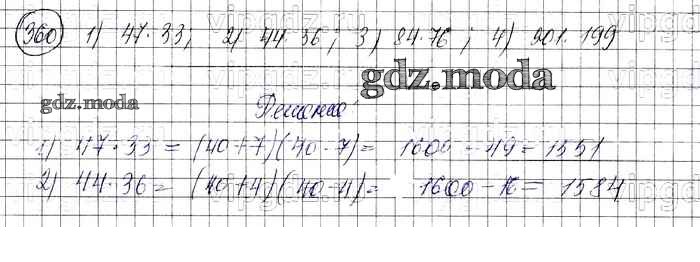 360 1) 47·33; 2) 44·36; 3) 84·76; 4) 201·199
gdz.moda
gdz.moda
Решение
1) 47·33 = (40+7)(40-7) = 1600 - 49 = 1551
2) 44·36 = (40+4)(40-4) = 1600 - 16 = 1584